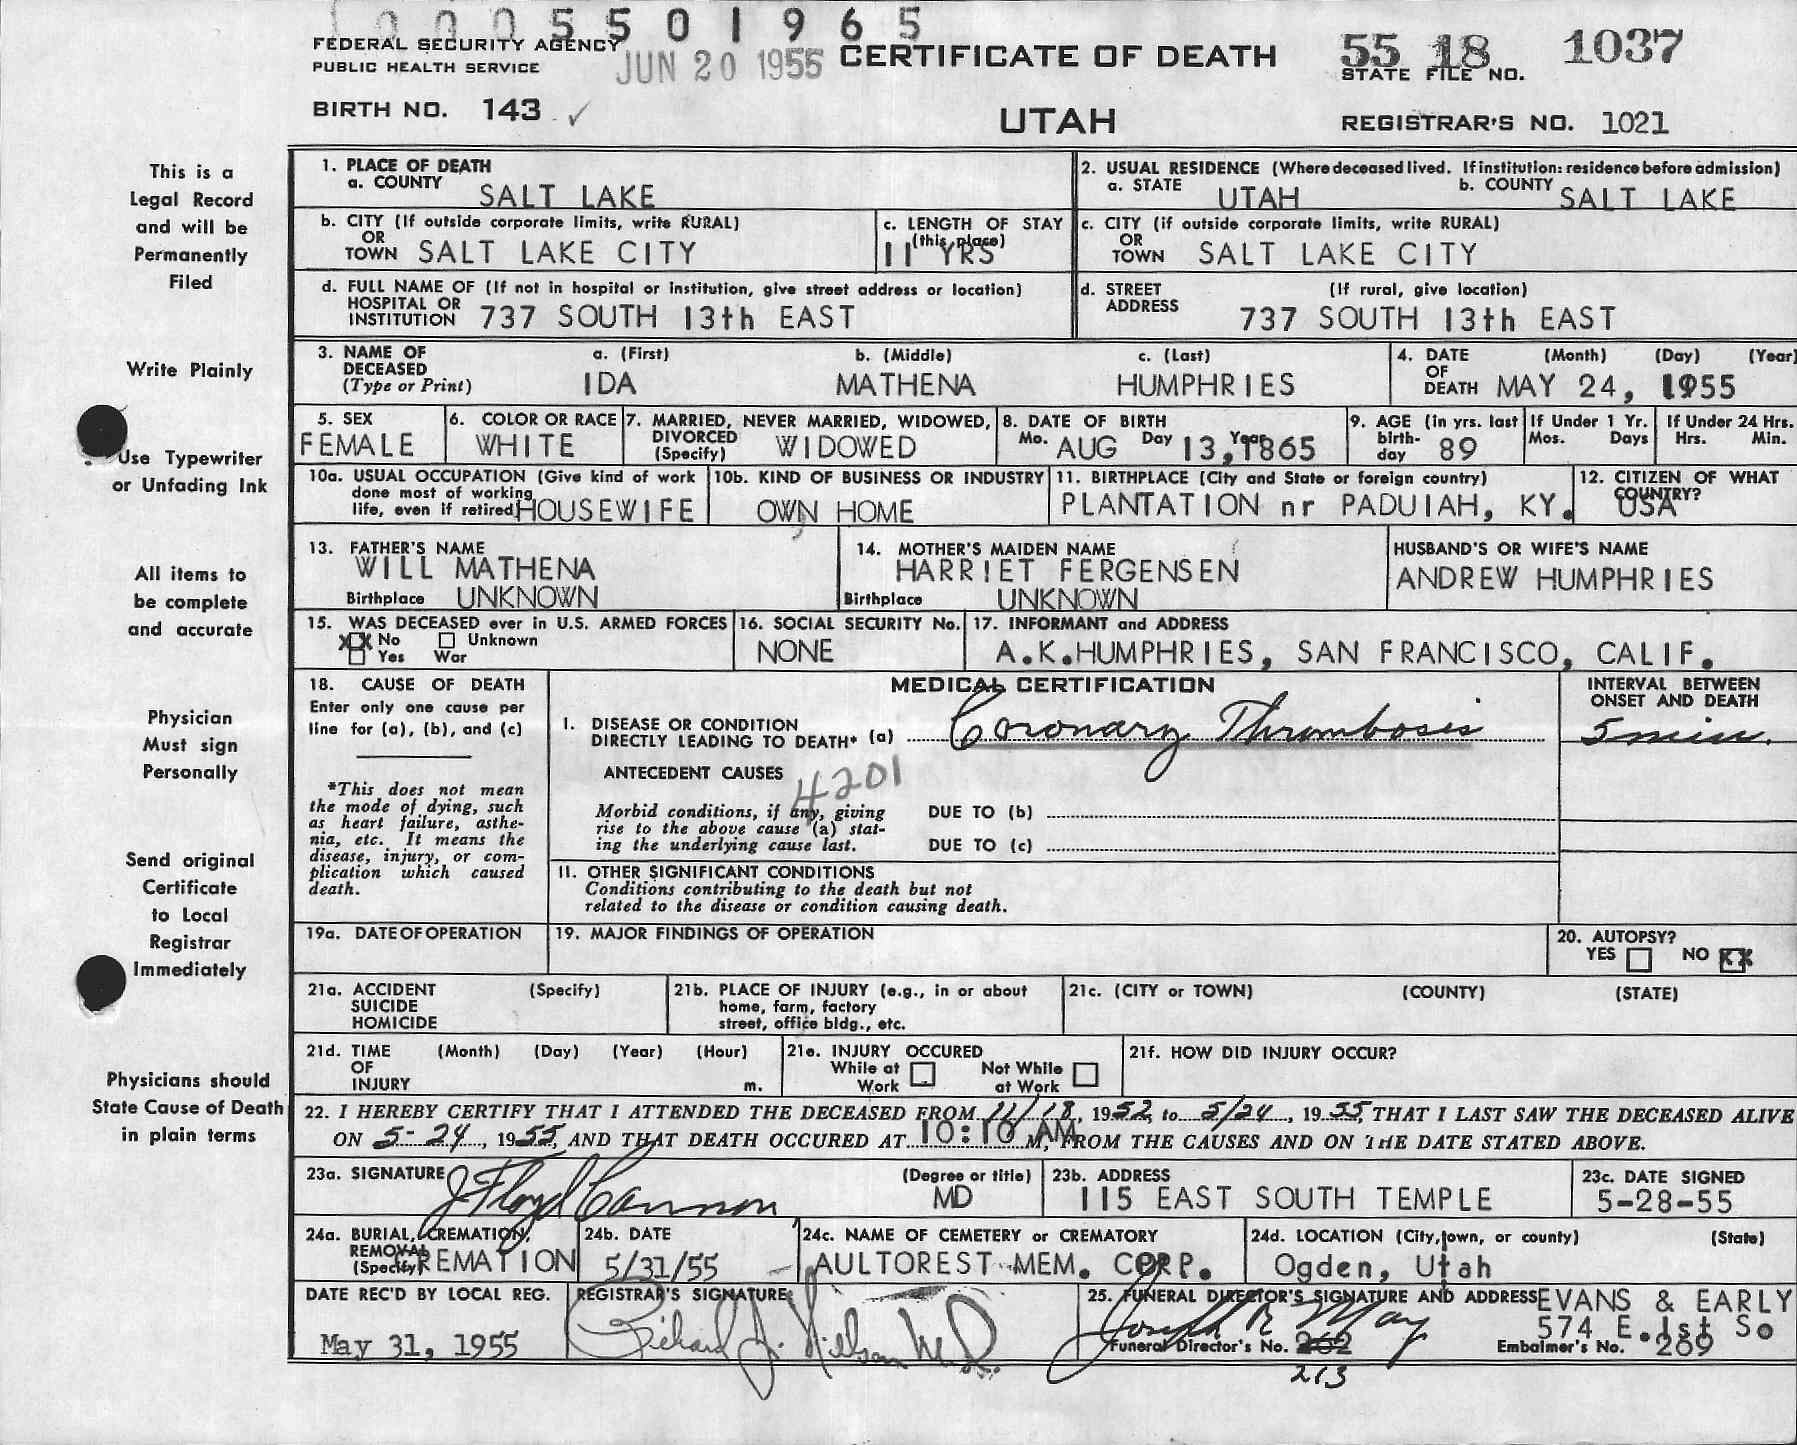 1 0 0 0 5 5 0 1 9 6 5
FEDERAL SECURITY AGENCY
PUBLIC HEALTH SERVICE
JUN 20 1955
CERTIFICATE OF DEATH
55 18 1037
STATE FILE NO.
BIRTH NO. 143 ✓
UTAH
REGISTRAR'S NO. 1021
This is a
Legal Record
and will be
Permanently
Filed
Write Plainly
Use Typewriter
or Unfading Ink
All items to
be complete
and accurate
Physician
Must sign
Personally
Send original
Certificate
to Local
Registrar
Immediately
Physicians should
State Cause of Death
in plain terms
1. PLACE OF DEATH
a. COUNTY SALT LAKE
2. USUAL RESIDENCE (Where deceased lived. If institution: residence before admission)
a. STATE UTAH b. COUNTY SALT LAKE
b. CITY (If outside corporate limits, write RURAL)
OR
TOWN SALT LAKE CITY
c. LENGTH OF STAY
(this place)
11 YRS
c. CITY (if outside corporate limits, write RURAL)
OR
TOWN SALT LAKE CITY
d. FULL NAME OF (If not in hospital or institution, give street address or location)
HOSPITAL OR
INSTITUTION 737 SOUTH 13th EAST
d. STREET (If rural, give location)
ADDRESS 737 SOUTH 13th EAST
3. NAME OF DECEASED (Type or Print)
a. (First) b. (Middle) c. (Last)
IDA MATHENA HUMPHRIES
4. DATE OF DEATH (Month) (Day) (Year)
MAY 24, 1955
5. SEX
FEMALE
6. COLOR OR RACE
WHITE
7. MARRIED, NEVER MARRIED, WIDOWED,
DIVORCED
(Specify) WIDOWED
8. DATE OF BIRTH
Mo. AUG Day 13, Year 1865
9. AGE (in yrs. last
birth-
day 89
If Under 1 Yr.
Mos. Days
If Under 24 Hrs.
Hrs. Min.
10a. USUAL OCCUPATION (Give kind of work
done most of working
life, even if retired) HOUSEWIFE
10b. KIND OF BUSINESS OR INDUSTRY
OWN HOME
11. BIRTHPLACE (City and State or foreign country)
PLANTATION nr PADUIAH, KY.
12. CITIZEN OF WHAT
COUNTRY?
USA
13. FATHER'S NAME
WILL MATHENA
Birthplace UNKNOWN
14. MOTHER'S MAIDEN NAME
HARRIET FERGENSEN
Birthplace UNKNOWN
HUSBAND'S OR WIFE'S NAME
ANDREW HUMPHRIES
15. WAS DECEASED ever in U.S. ARMED FORCES
XX No Unknown
Yes War
16. SOCIAL SECURITY No.
NONE
17. INFORMANT and ADDRESS
A.K.HUMPHRIES, SAN FRANCISCO, CALIF.
18. CAUSE OF DEATH
Enter only one cause per
line for (a), (b), and (c)
*This does not mean
the mode of dying, such
as heart failure, asthe-
nia, etc. It means the
disease, injury, or com-
plication which caused
death.
MEDICAL CERTIFICATION
INTERVAL BETWEEN
ONSET AND DEATH
I. DISEASE OR CONDITION
DIRECTLY LEADING TO DEATH* (a) Coronary Thrombosis
5 min.
ANTECEDENT CAUSES
4201
Morbid conditions, if any, giving
rise to the above cause (a) stat-
ing the underlying cause last.
DUE TO (b)
DUE TO (c)
II. OTHER SIGNIFICANT CONDITIONS
Conditions contributing to the death but not
related to the disease or condition causing death.
19a. DATE OF OPERATION
19. MAJOR FINDINGS OF OPERATION
20. AUTOPSY?
YES NO XX
21a. ACCIDENT (Specify)
SUICIDE
HOMICIDE
21b. PLACE OF INJURY (e.g., in or about
home, farm, factory
street, office bldg., etc.
21c. (CITY or TOWN) (COUNTY) (STATE)
21d. TIME (Month) (Day) (Year) (Hour)
OF
INJURY m.
21e. INJURY OCCURED
While at Work Not While at Work
21f. HOW DID INJURY OCCUR?
22. I HEREBY CERTIFY THAT I ATTENDED THE DECEASED FROM 11/18, 1952, to 5/24, 1955, THAT I LAST SAW THE DECEASED ALIVE
ON 5-24, 1955, AND THAT DEATH OCCURED AT 10:10 AM M, FROM THE CAUSES AND ON THE DATE STATED ABOVE.
23a. SIGNATURE (Degree or title)
J Floyd Cannon MD
23b. ADDRESS
115 EAST SOUTH TEMPLE
23c. DATE SIGNED
5-28-55
24a. BURIAL, CREMATION,
REMOVAL
(Specify) CREMATION
24b. DATE
5/31/55
24c. NAME OF CEMETERY or CREMATORY
AULTOREST MEM. CORP.
24d. LOCATION (City, town, or county) (State)
Ogden, Utah
DATE REC'D BY LOCAL REG.
May 31, 1955
REGISTRAR'S SIGNATURE
Richard J. Nelson M.D.
25. FUNERAL DIRECTOR'S SIGNATURE AND ADDRESS EVANS & EARLY
Joseph R May 574 E. 1st So
Funeral Director's No. 262 Embalmer's No. 269
213